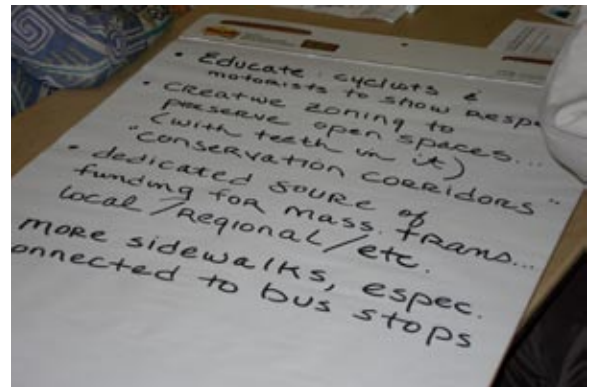 • Educate cyclists &
motorists to show Resp
• Creative zoning to
preserve open spaces...
(with teeth in it)
"conservation corridors"
• dedicated soure of
funding for mass. trans...
local/regional/etc.
more sidewalks, espec.
onnected to bus stops